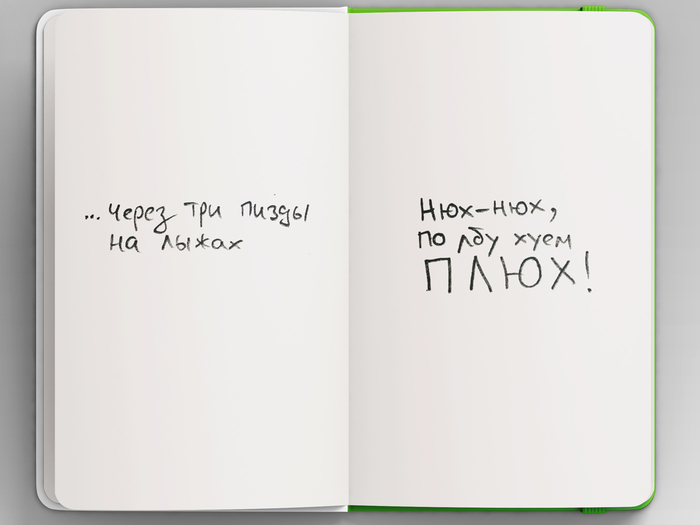 ...через три пизды
на лыжах
Нюх-нюх,
по лбу хуем
ПЛЮХ!